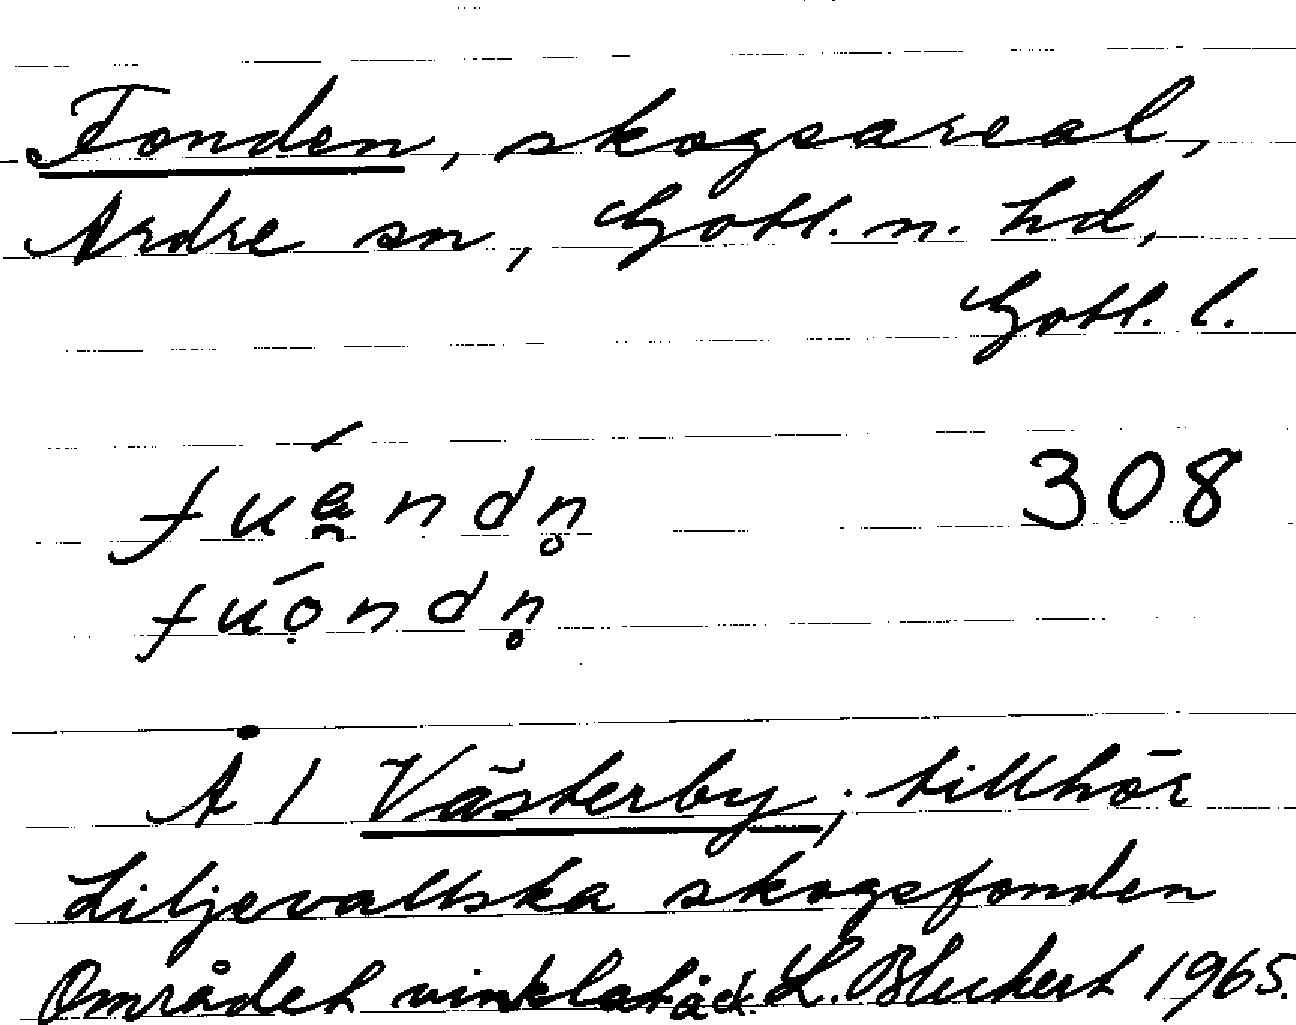 Fonden, skogsareal,
Ardre sn, Gotl. n. hd,
Gotl. l.
308
fuóndn̥
Å 1 Västerby; tillhör
Liljevallska skogsfonden
Området L. Bleckert 1965.